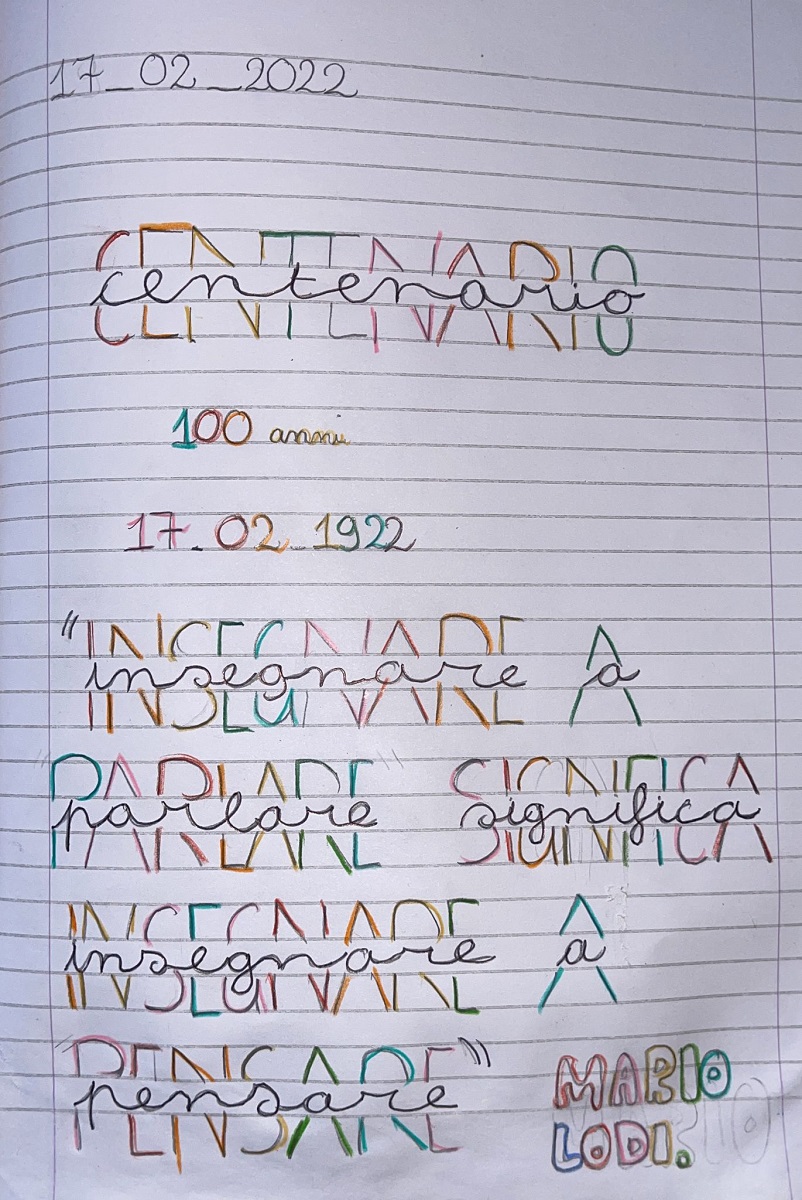 17_02_2022
CENTENARIO
centenario
100 anni
17.02.1922
"INSEGNARE A
insegnare a
PARLARE SIGNIFICA
parlare significa
INSEGNARE A
insegnare a
PENSARE"
pensare
MARIO
LODI.